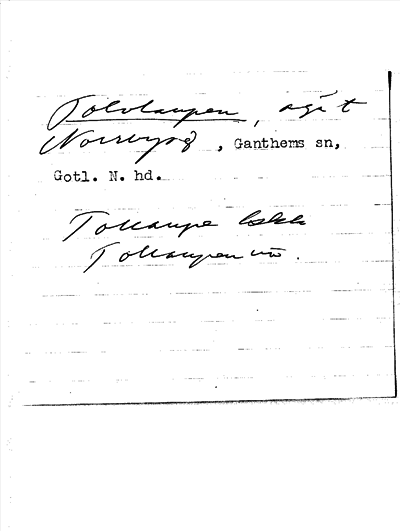 Tolvlaupen, ägå t
Norrbys, Ganthems sn,
Gotl. N. hd.
Tollaupe
Tollaupen